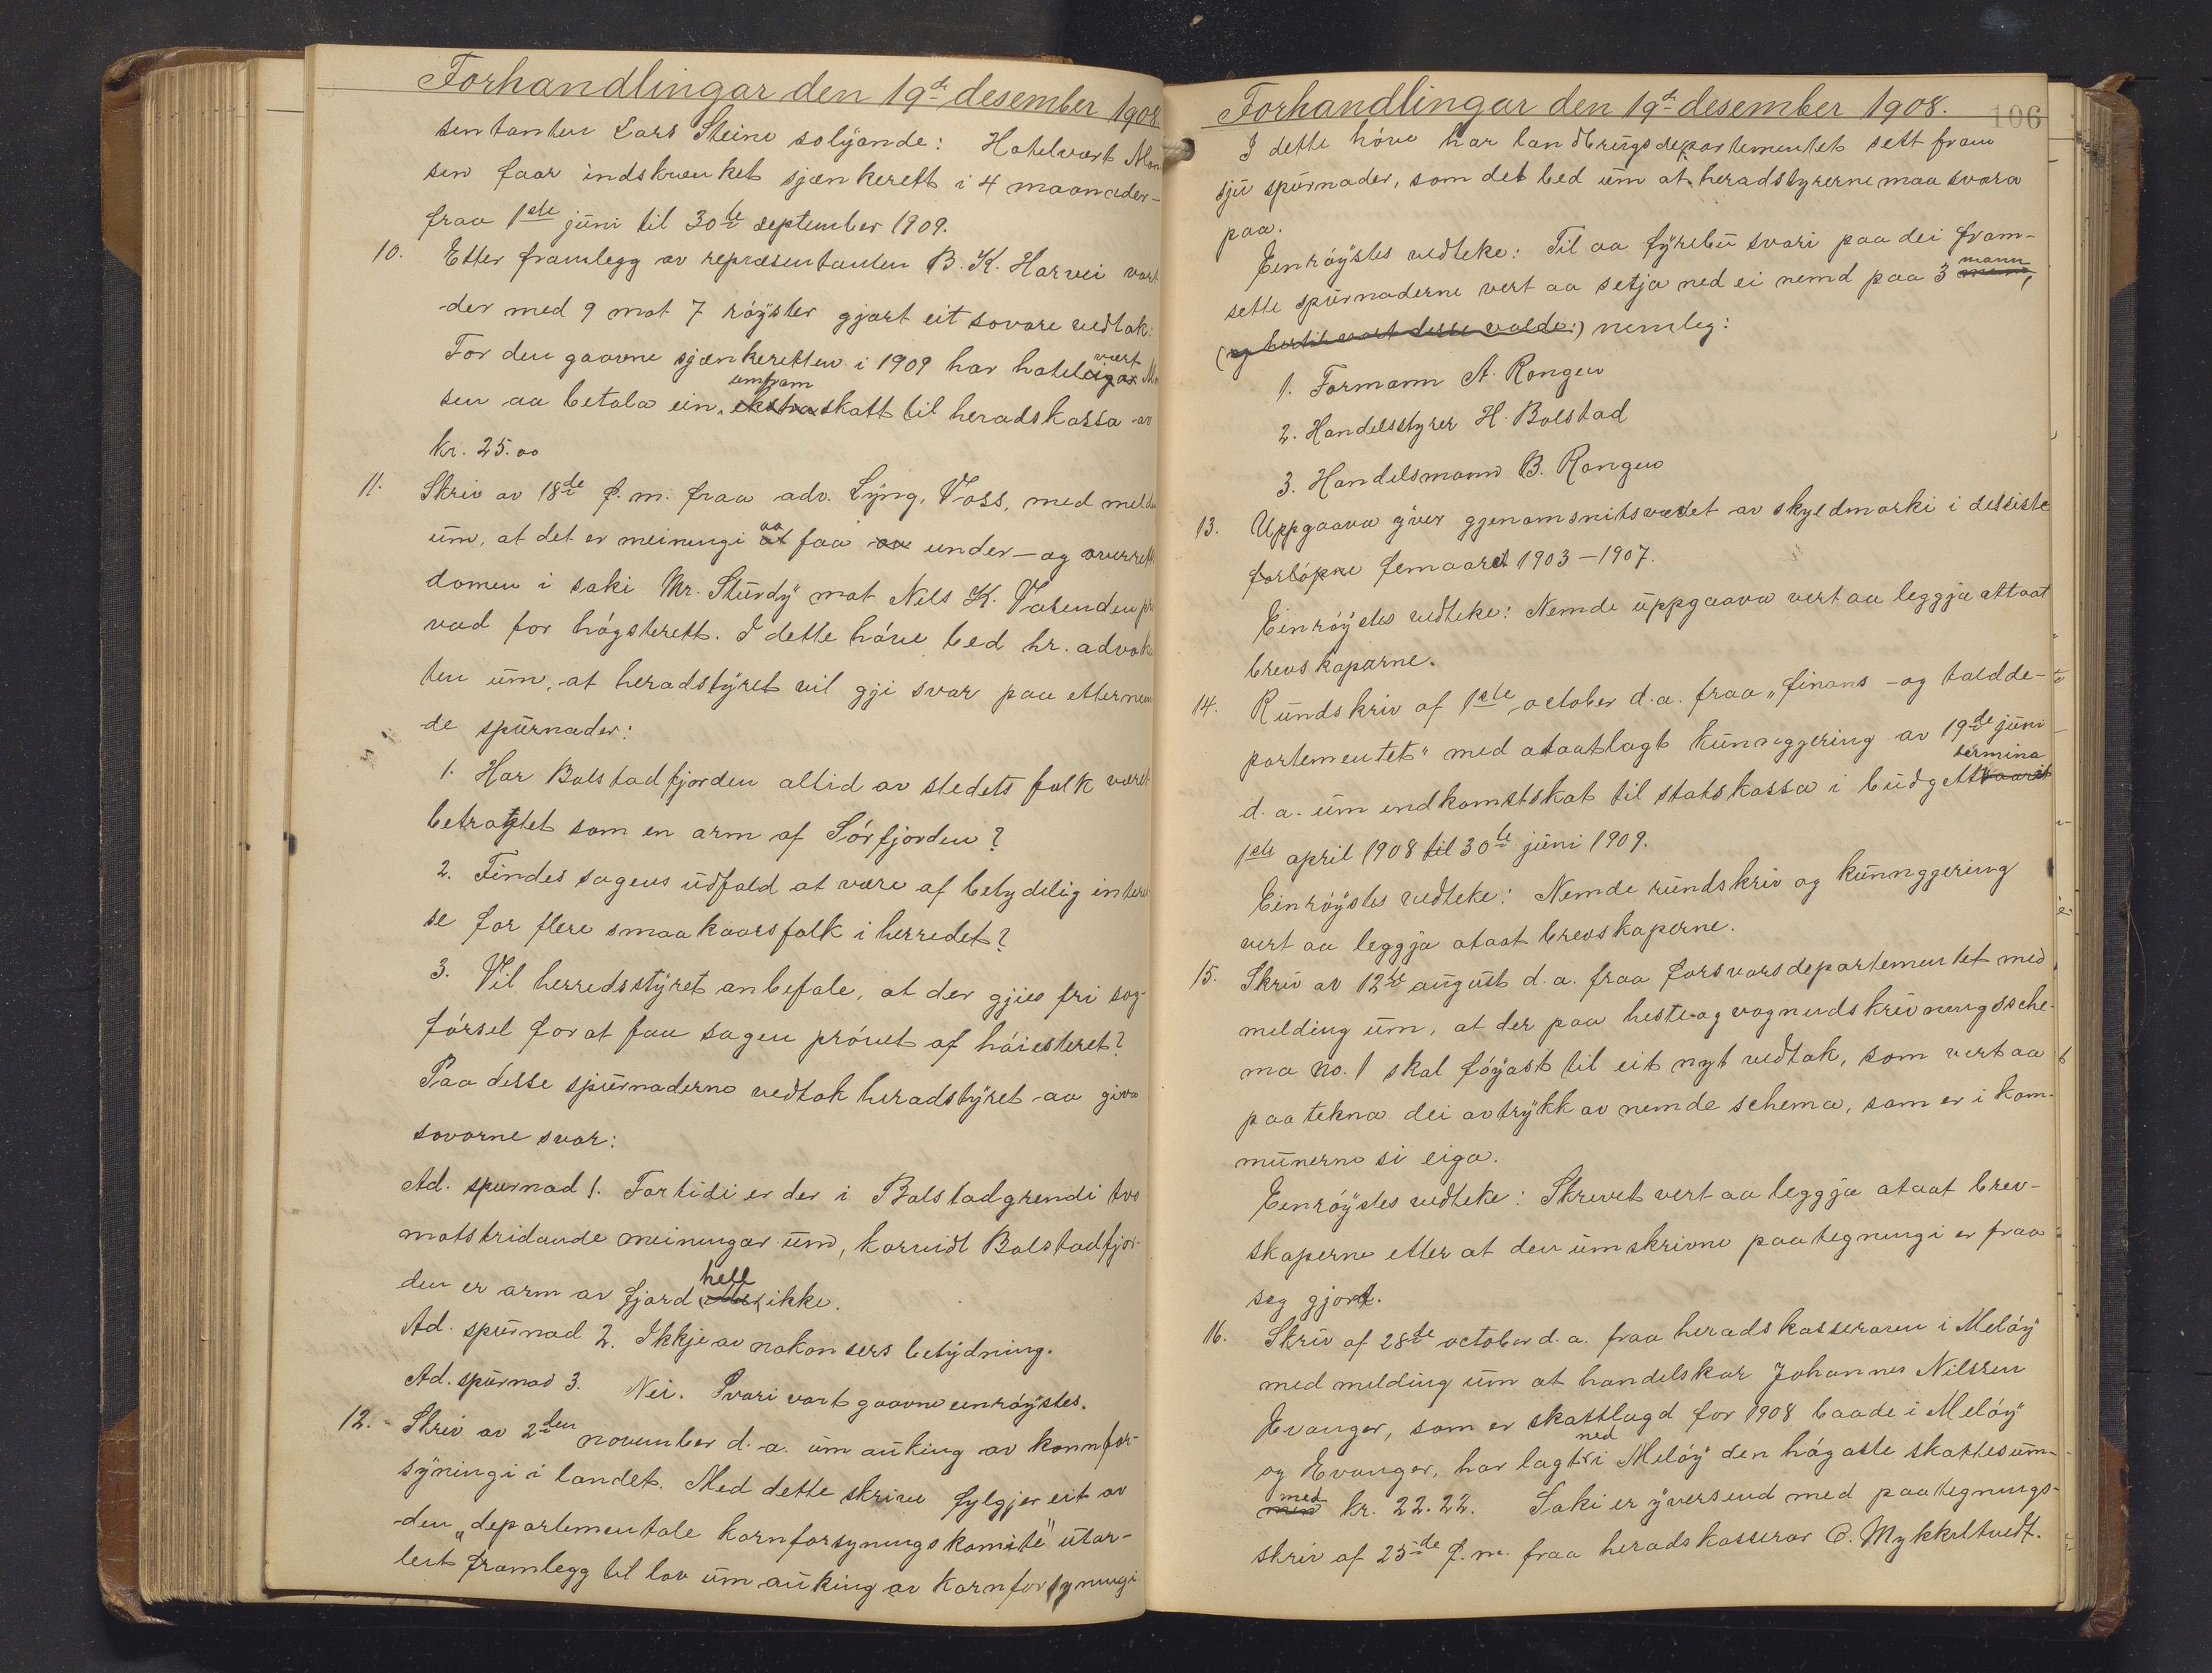 Forhandlingar den 19de desember 1908
sentanten Lars Steine solýande: Hotelvært Mon
sen faar indskrenket sjænkerett i 4 maaneder -
fraa 1ste júni til 30te september 1909.
10. Etter framlegg av repræsentanten B. K. Horvei vart
der med 9 mot 7 röyster gjort eit sovore vedtak:
For den gaavne sjænkeretten i 1909 har hoteleigar vært Mon
sen aa betala ein ekstra umfram skatt til heradskassa av
kr. 25.00
11. Skriv av 18de f. m. fraa adv. Lýng, Voss, med melding
úm, at det er meiningi at aa faa aa under- og overretts
domen i saki Mr. Stúrdý mot Nils K. Vasenden prö
vad for högsterett. I dette höve bed hr. advoka
ten úm, at heradstýret vil gji svar paa etternem
de spúrnader:
1. Har Bolstadfjorden altid av stedets folk været
betragtet som en arm af Sörfjorden?
2. Findes sagens údfald at være af betydelig interes
se for flere smaakaarsfolk i herredet?
3. Vil herredsstýret anbefale, at der gjies fri sag-
försel for at faa sagen prövet af höiesteret?
Paa desse spúrnaderne vedtok heradstýret aa giva
sovorne svar:
Ad. spurnad 1. Fortidi er der i Bolstadgrendi tvo
motstridande meiningar úm, korvidt Bolstadfjor-
den er arm av fjord eller hell ikke.
Ad. spúrnad 2. Ikkje av nokon sers betýdning.
Ad. spúrnad 3. Nei. Svari vart gaavne einröýstes.
12. Skriv av 2den november d. a. úm aúking av kornfor-
sýningi i landet. Med dette skrive fylgjer eit av
den "departementale kornforsyningskomite" útar-
leit framlegg til lov úm aúking av kornforsyningi.
Forhandlingar den 19de desember 1908.
106
I dette höve har landbrúgsdepartementet sett fram
sjú spúrnader, som det bed úm at heradstyrerne maa svara
paa.
Einröýstes vedteke: Til aa fýrebú svari paa dei fram-
sette spúrnaderne vert aa setja ned ei nemd paa 3 mann,
(og hertil vart desse valde:) nemleg:
1. Formann A. Rongen
2. Handelsstyrer H. Bolstad
3. Handelsmann B. Rongen
13. Uppgaava ýver gjenomsnitsverdet av skyldmarki i det siste
forlöpne femaaret 1903-1907.
Einröýstes vedteke: Nemde úppgaava vert aa leggja attaat
brevskaparne.
14. Rúndskriv af 1ste october d. a. fraa "finans- og toldde-
partementet" med ataatlagt kúnnggjering av 19de júni
d. a. úm indkomstskat til statskassa i búdgettaaret termina
1ste april 1908 til 30te júni 1909.
Einröýstes vedteke: Nemde rúndskriv og kúnnggjering
vert aa leggja ataat brevskaperne.
15. Skriv av 12te aúgúst d. a. fraa forsvarsdepartementet med
melding úm, at der paa heste- og vognudskrivningssche-
ma No. 1 skal föýast til eit nyt vedtak, som vert aa
paatekna dei avtrýkk av nemde schema, som er i kom-
múnerne si eiga.
Einröýstes vedteke: Skrivet vert aa leggja ataat brev-
skaperne etter at den úmskrivne paategningi er fraa
seg gjort.
16. Skriv af 28de october d. a. fraa heradskasseraren i Melöý
med melding úm at handelskar Johannes Nilssen
Evanger, som er skattlagd for 1908 baade i Melöý
og Evanger, har lagt ned i Melöý den högaste skattesúm-
med kr. 22.22. Saki er ýversend med paategnings-
skriv af 25de f. m. fraa heradskasserar O. Mykkeltvedt.